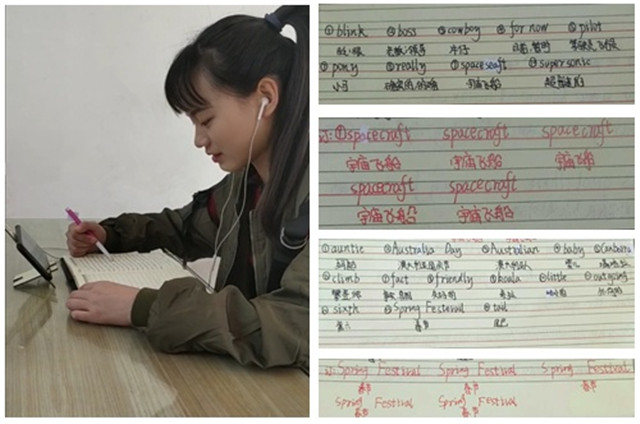 ①blink ②boss ③cowboy ④for now ⑤pilot
眨眼 老板/领导 牛仔 目前,暂时
⑥pony ⑦really ⑧spaceseaft ⑨supersonic
小马 宇宙飞船 超音速的
spacecraft spacecraft spacecraft
宇宙飞船 宇宙飞船 宇宙飞船
spacecraft spacecraft
宇宙飞船 宇宙飞船
①auntie ②Australia Day ③Australian ④baby ⑤Canberra
澳大利亚国庆节 澳大利亚人
⑥climb ⑦fact ⑧friendly ⑨koala little outgoing
友好的 考拉 外向的
sixth Spring Festival tail
第六 春节 尾巴
Spring Festival Spring Festival Spring Festival
春节 春节 春节
Spring Festival Spring Festival
春节 春节